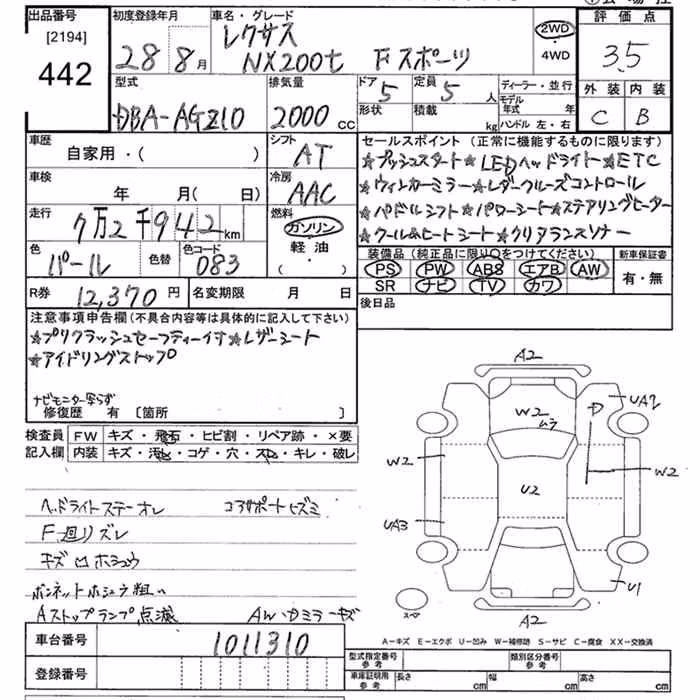 出品番号
[2194]
442
初度登録年月
28 8月
車名・グレード
レクサス
NX200t Fスポーツ
2WD
・
4WD
評価点
3.5
外装 内装
C B
型式
DBA-AGZ10
排気量
2000 cc
ドア 5
定員 5 人
形状
積載 kg
ディーラー・並行
モデル年式 年
ハンドル 左・右
車歴
自家用・( )
シフト
AT
車検
年 月( 日)
冷房
AAC
走行
7万2千942km
燃料
ガソリン
軽油
( ・ )
色
パール
色替
色コード
083
R券 12,370円
名変期限 月 日
セールスポイント(正常に機能するものに限ります)
★プッシュスタート★LEDヘッドライト★ETC
★ウィンカーミラー★レダークルーズコントロール
★パドルシフト★パワーシート★ステアリングヒーター
★クール&ヒートシート★クリアランスソナー
装備品(純正品に限り○をつけてください)
PS PW ABS エアB AW
SR ナビ TV カワ
新車保証書
有・無
後日品
注意事項申告欄(不具合内容等は具体的に記入して下さい)
★プリクラッシュセーフティーイ寸★レザーシート
★アイドリングストップ
ナビモニター写らず
修復歴 有 〔箇所 〕
検査員
記入欄
FW キズ・飛石・ヒビ割・リペア跡・×要
内装 キズ・汚れ・コゲ・穴・スレ・キレ・破レ
ヘッドライトステーオレ コアサポートヒズミ
F廻リズレ
キズ凹ホシュウ
ボンネットホシュウ粗い
Aストップランプ点滅 AWカミラーキズ
車台番号 1011310
登録番号
A2
W2
ムラ
UA2
W2
W2
U2
UA3
U1
スペア
A2
A－キズ E－エクボ U－凹み W－補修跡 S－サビ C－腐食 XX－交換済
型式指定番号
参考
類別区分番号
参考
車庫証明用
参考
長さ cm
幅 cm
高さ cm